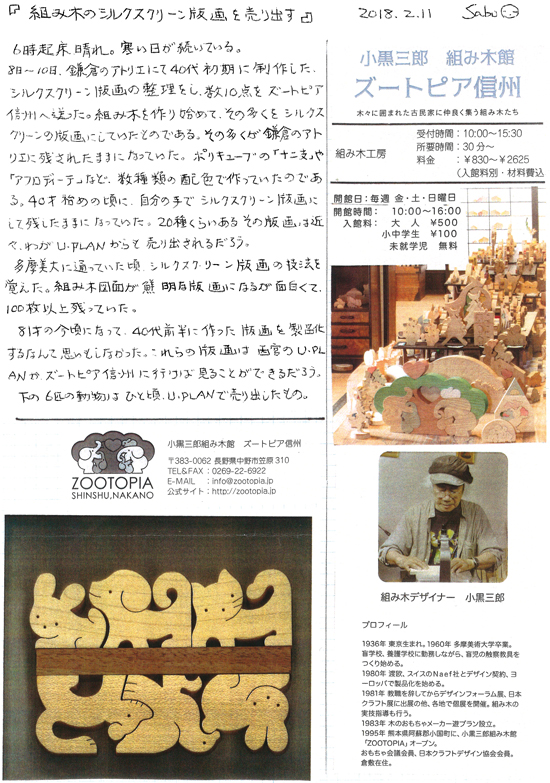 『組み木のシルクスクリーン版画を売り出す』
2018.2.11 Sabu
6時起床、晴れ。寒い日が続いている。
8日～10日、鎌倉のアトリエにて40代初期に制作した、
シルクスクリーン版画の整理をし、数10点をズートピア
信州へ送った。組み木を作り始めて、その多くをシルクス
クリーンの版画にしていたのである。その多くが鎌倉のアト
リエに残されたままになっていた。ポリキューブの「十二支」や
「アフロディーテ」など、数種類の配色で作っていたのであ
る。40才始めの頃に、自分の手でシルクスクリーン版画に
して残したままになっていた。20種くらいあるその版画は近
々、わがU.PLANからも売り出されるだろう。
多摩美大に通っていた頃、シルクスクリーン版画の技法を
覚えた。組み木図面が無明な版画になるが面白くて、
100枚以上残っていた。
81才の今頃になって、40代前半に作った版画を製品化
するなんて思いもしなかった。これらの版画は西宮のU.PL
ANか、ズートピア信州に行けば見ることができるだろう。
下の6匹の動物はひと頃、U.PLANで売り出したもの。
小黒三郎 組み木館
ズートピア信州
木々に囲まれた古民家に仲良く集う組み木たち
組み木工房
受付時間：10:00～15:30
所要時間：30分～
料金 ：￥830～￥2625
（入館料別・材料費込
開館日：毎週 金・土・日曜日
開館時間： 10:00～16:00
入館料： 大 人 ￥500
小中学生 ￥100
未就学児 無料
ZOOTOPIA
SHINSHU,NAKANO
小黒三郎組み木館 ズートピア信州
〒383-0062 長野県中野市笠原310
TEL&FAX：0269-22-6922
E-MAIL ：info@zootopia.jp
公式サイト：http://zootopia.jp
組み木デザイナー 小黒三郎
プロフィール
1936年 東京生まれ。1960年 多摩美術大学卒業。
盲学校、養護学校に勤務しながら、盲児の触察教具を
つくり始める。
1980年 渡欧、スイスのNaef社とデザイン契約、ヨ
ーロッパで製品化を始める。
1981年 教職を辞してからデザインフォーラム展、日本
クラフト展に出展の他、各地で個展を開催。組み木の
実技指導も行う。
1983年 木のおもちゃメーカー遊プラン設立。
1995年 熊本県阿蘇郡小国町に、小黒三郎組み木館
「ZOOTOPIA」オープン。
おもちゃ会議会員、日本クラフトデザイン協会会員。
倉敷在住。